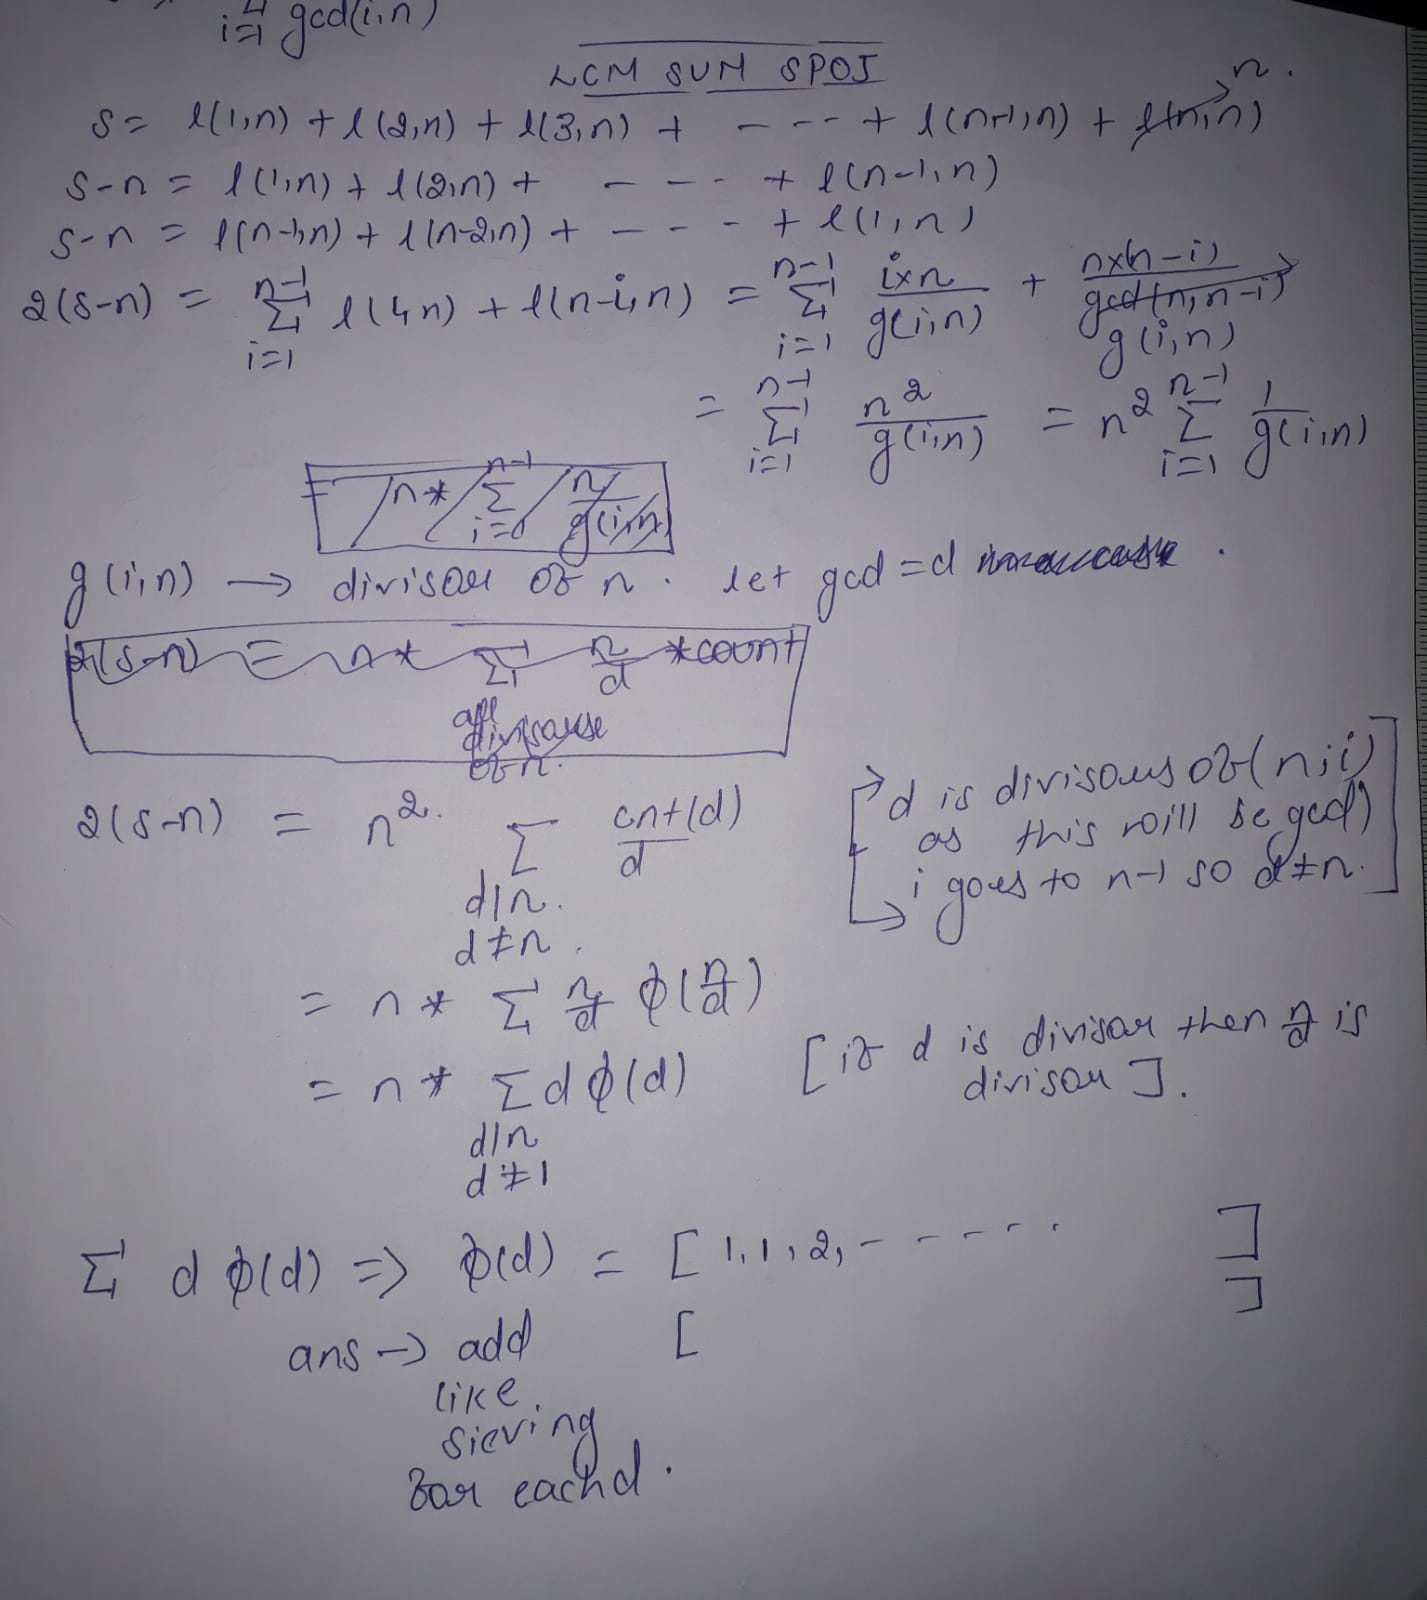 i=1 gcd(i,n)
LCM SUM SPOJ
S = l(1,n) + l(2,n) + l(3,n) + - - - - + l(n-1,n) + l(n,n) n.
S-n = l(1,n) + l(2,n) + - - - + l(n-1,n)
S-n = l(n-1,n) + l(n-2,n) + - - - + l(1,n)
2(S-n) = n-1 Σ i=1 l(i,n) + l(n-i,n) = n-1 Σ i=1 i×n / g(i,n) + n×(n-i) / gcd(n,n-i) g(i,n)
= n-1 Σ i=1 n² / g(i,n) = n² n-1 Σ i=1 1 / g(i,n)
n* n-1 Σ i=0 n / g(i,n)
g(i,n) → divisor of n. let gcd = d
2(S-n) = n* Σ n/d *count
all
of n.
2(S-n) = n². Σ cnt(d) / d
d|n.
d≠n.
[→ d is divisors of (n,i)
as this will be gcd)
→ i goes to n-1 so d≠n. ]
= n * Σ n/d ϕ(n/d)
= n * Σ d ϕ(d) [if d is divisor then n/d is
divisor].
d|n
d≠1
Σ d ϕ(d) => ϕ(d) = [ 1, 1, 2, - - - - - - ]
ans → add [ ]
like
sieving
for each d.